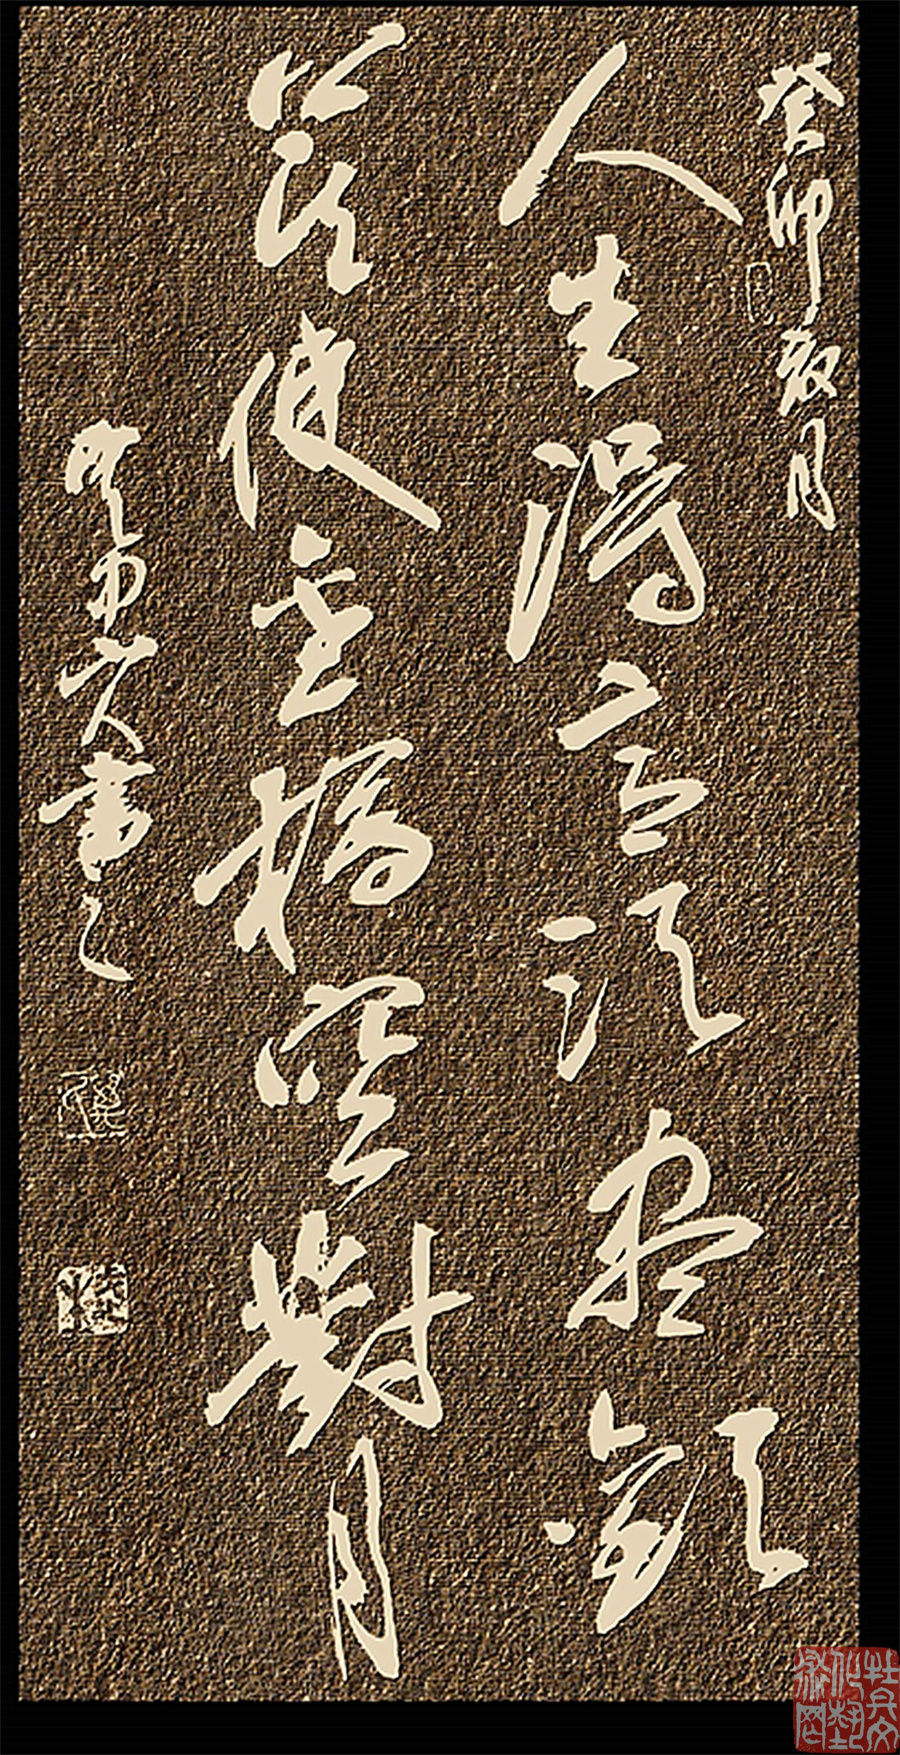 癸卯 月
人生得意須盡歡
莫使金樽空對月
山人書之